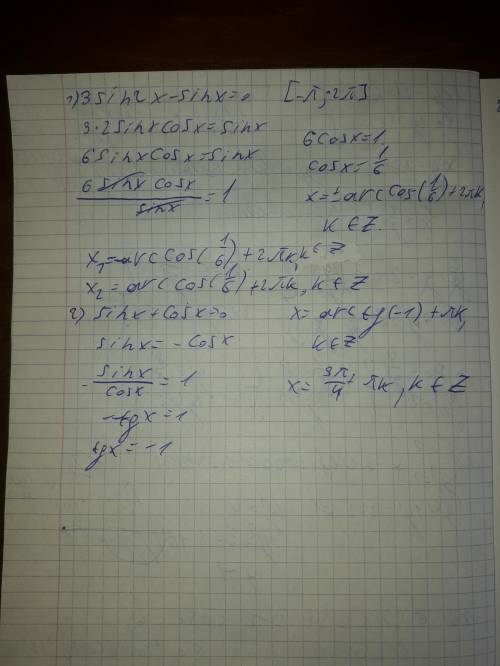 1) 3 sin2x - sinx = 0 [-π; 2π]
3·2sinxcosx = sinx
6sinxcosx = sinx
6 sinx cosx / sinx = 1
6cosx = 1
cosx = 1/6
x = ± arccos(1/6) + 2πk,
k ∈ Z.
x₁ = -arccos(1/6) + 2πk, k ∈ Z
x₂ = arccos(1/6) + 2πk, k ∈ Z
2) sinx + cosx = 0
sinx = -cosx
- sinx / cosx = 1
-tgx = 1
tgx = -1
x = arctg(-1) + πk,
k ∈ Z
x = 3π/4 + πk, k ∈ Z